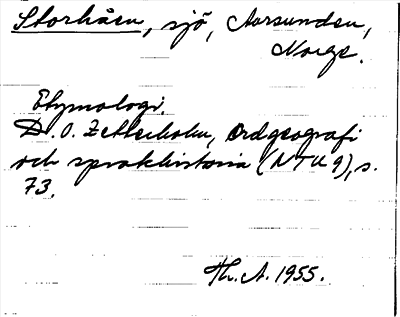 Storhåen, sjö, Aursunden,
Norge.
Etymologi.
D. O. Zetterholm, Ordgeografi
och språkhistoria (NTU 9), s.
73.
Th. A. 1955.